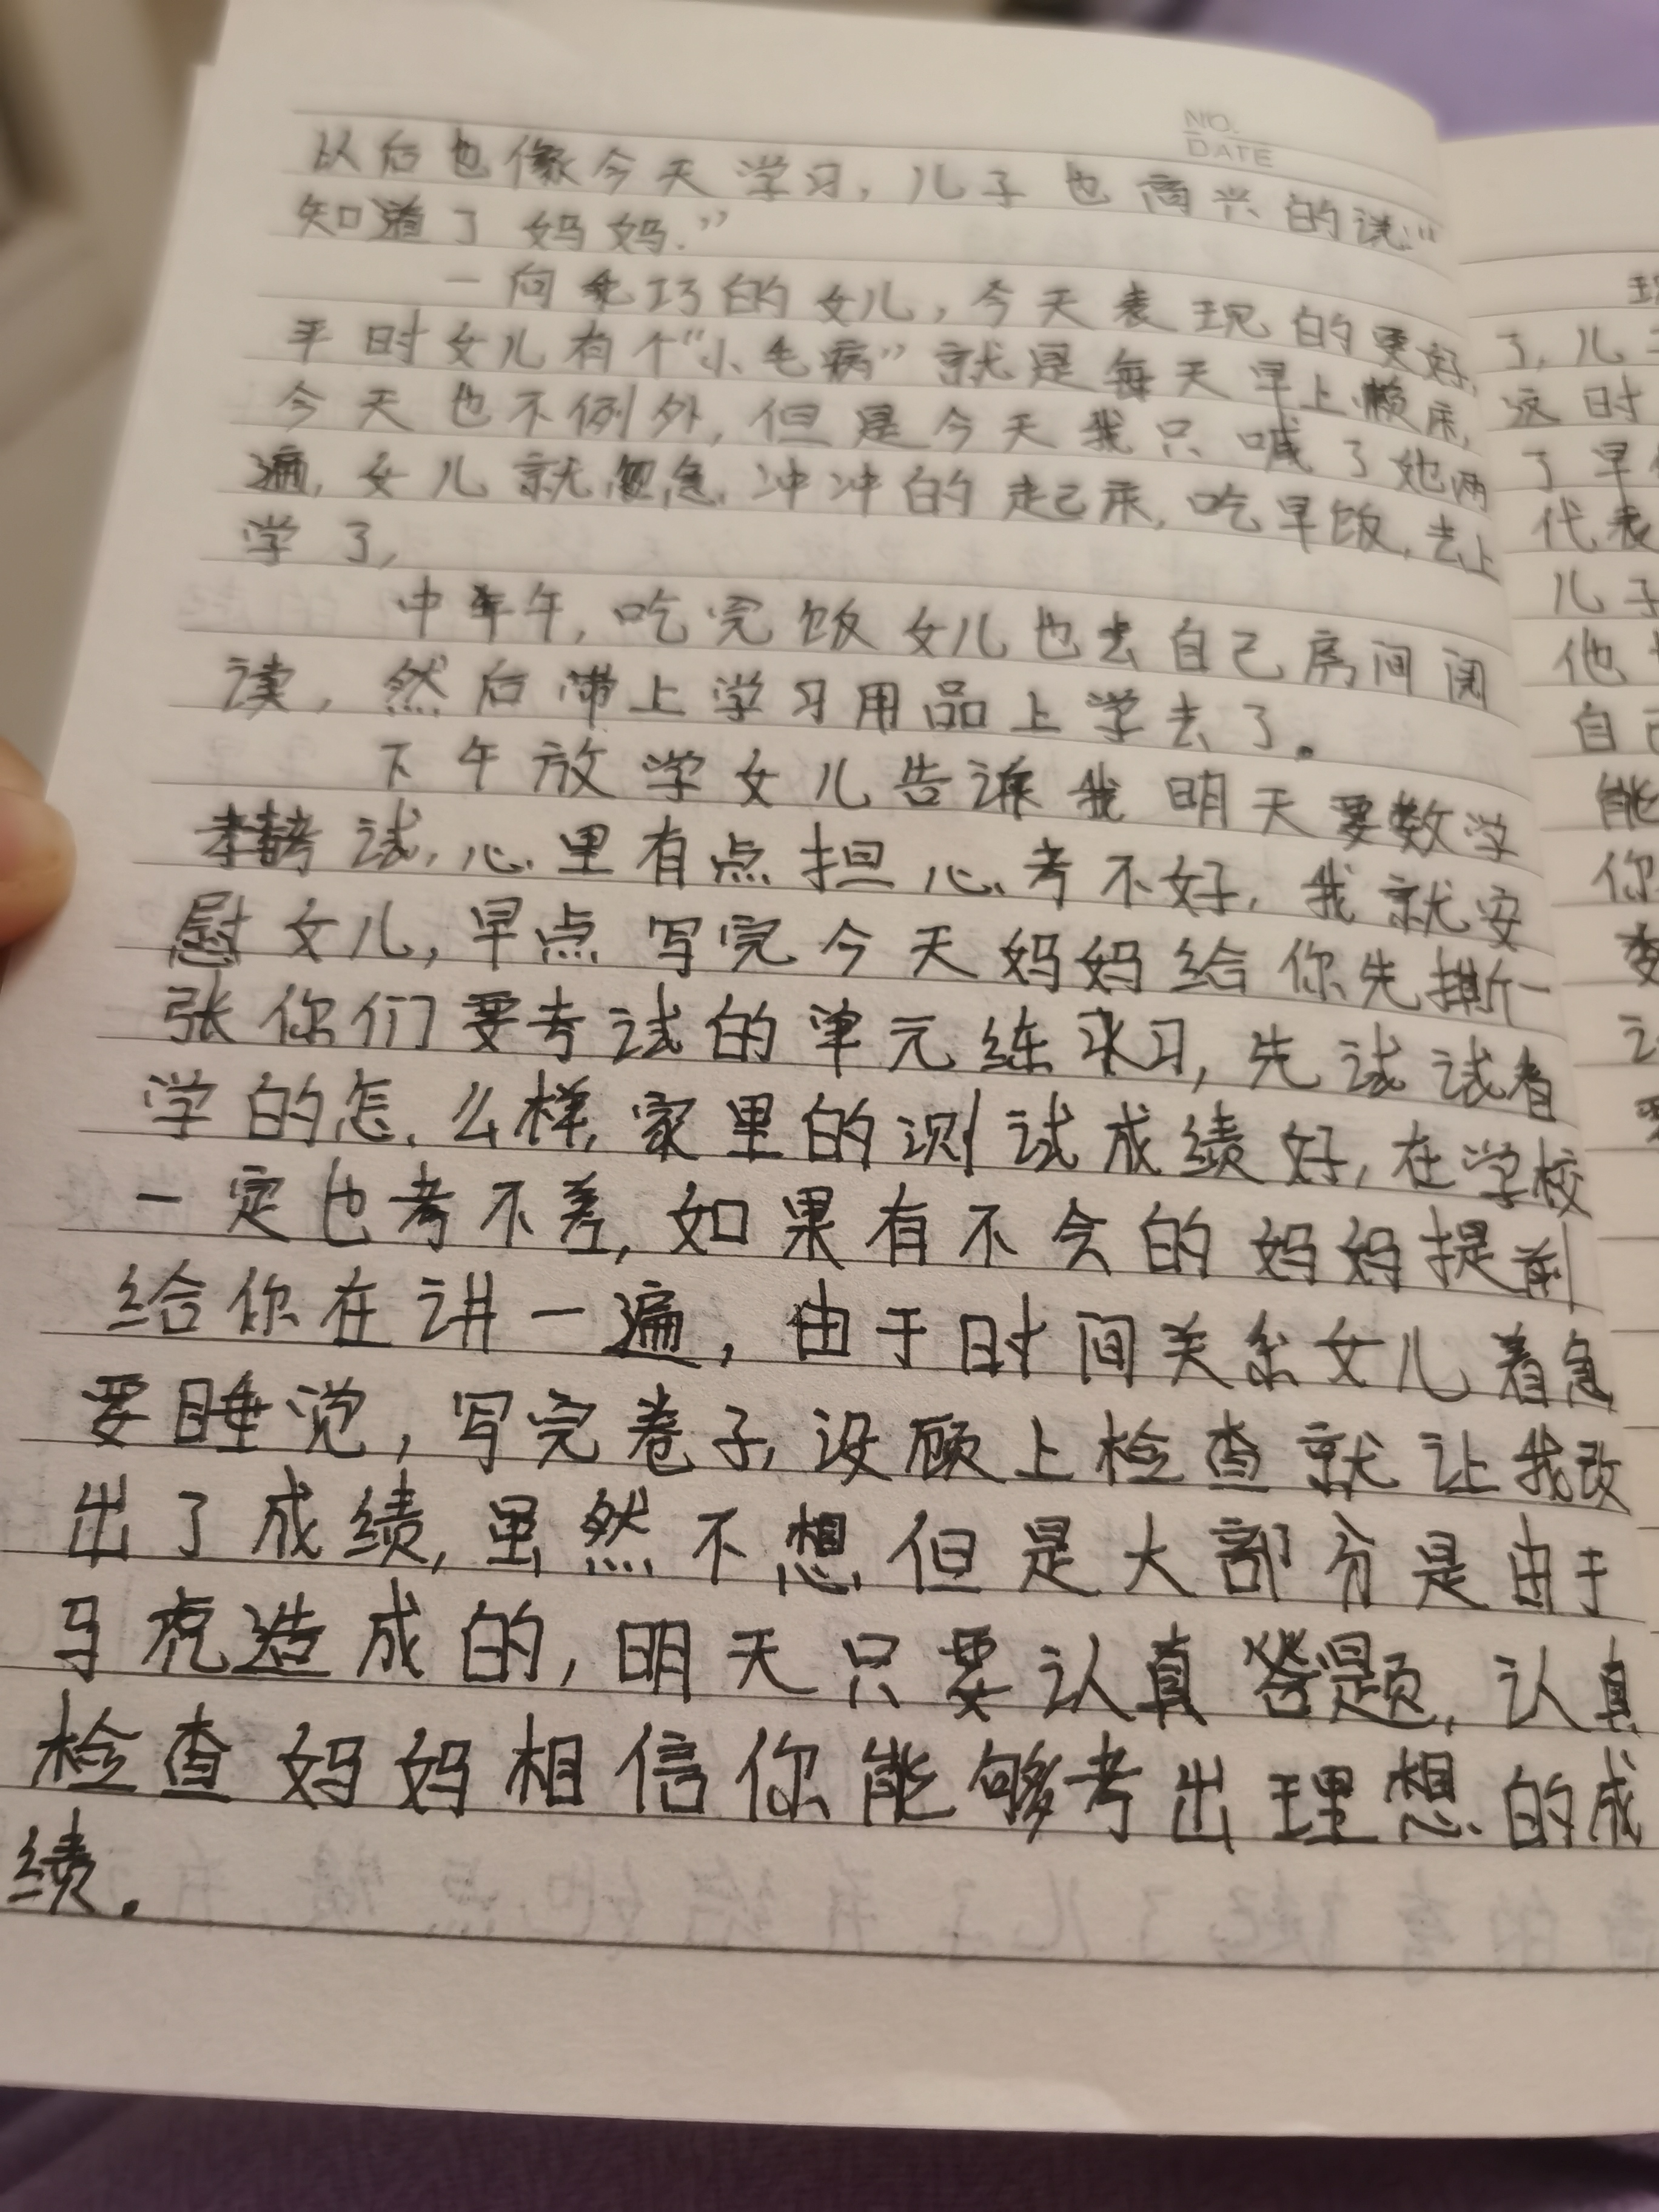 NO.
DATE
以后也像今天学习,儿子也高兴的说:“
知道了妈妈.”
一向乖巧的女儿,今天表现的更好,
平时女儿有个“小毛病”就是每天早上懒床,
今天也不例外,但是今天我只喊了她两
遍,女儿就忽急冲冲的起床,吃早饭,去上
学了,
中午,吃完饭女儿也去自己房间阅
读,然后带上学习用品上学去了。
下午放学女儿告诉我明天要数学
考试,心里有点担心考不好,我就安
慰女儿,早点写完今天妈妈给你先撕一
张你们要考试的单元练习,先试试看
学的怎么样,家里的测试成绩好,在学校
一定也考不差,如果有不会的妈妈提前
给你在讲一遍,由于时间关系女儿着急
要睡觉,写完卷子,没顾上检查就让我改
出了成绩,虽然不想但是大部分是由于
马虎造成的,明天只要认真答题,认真
检查妈妈相信你能够考出理想的成
绩.
了,儿子
这时
了早
代表
儿子
他
自己
能
你